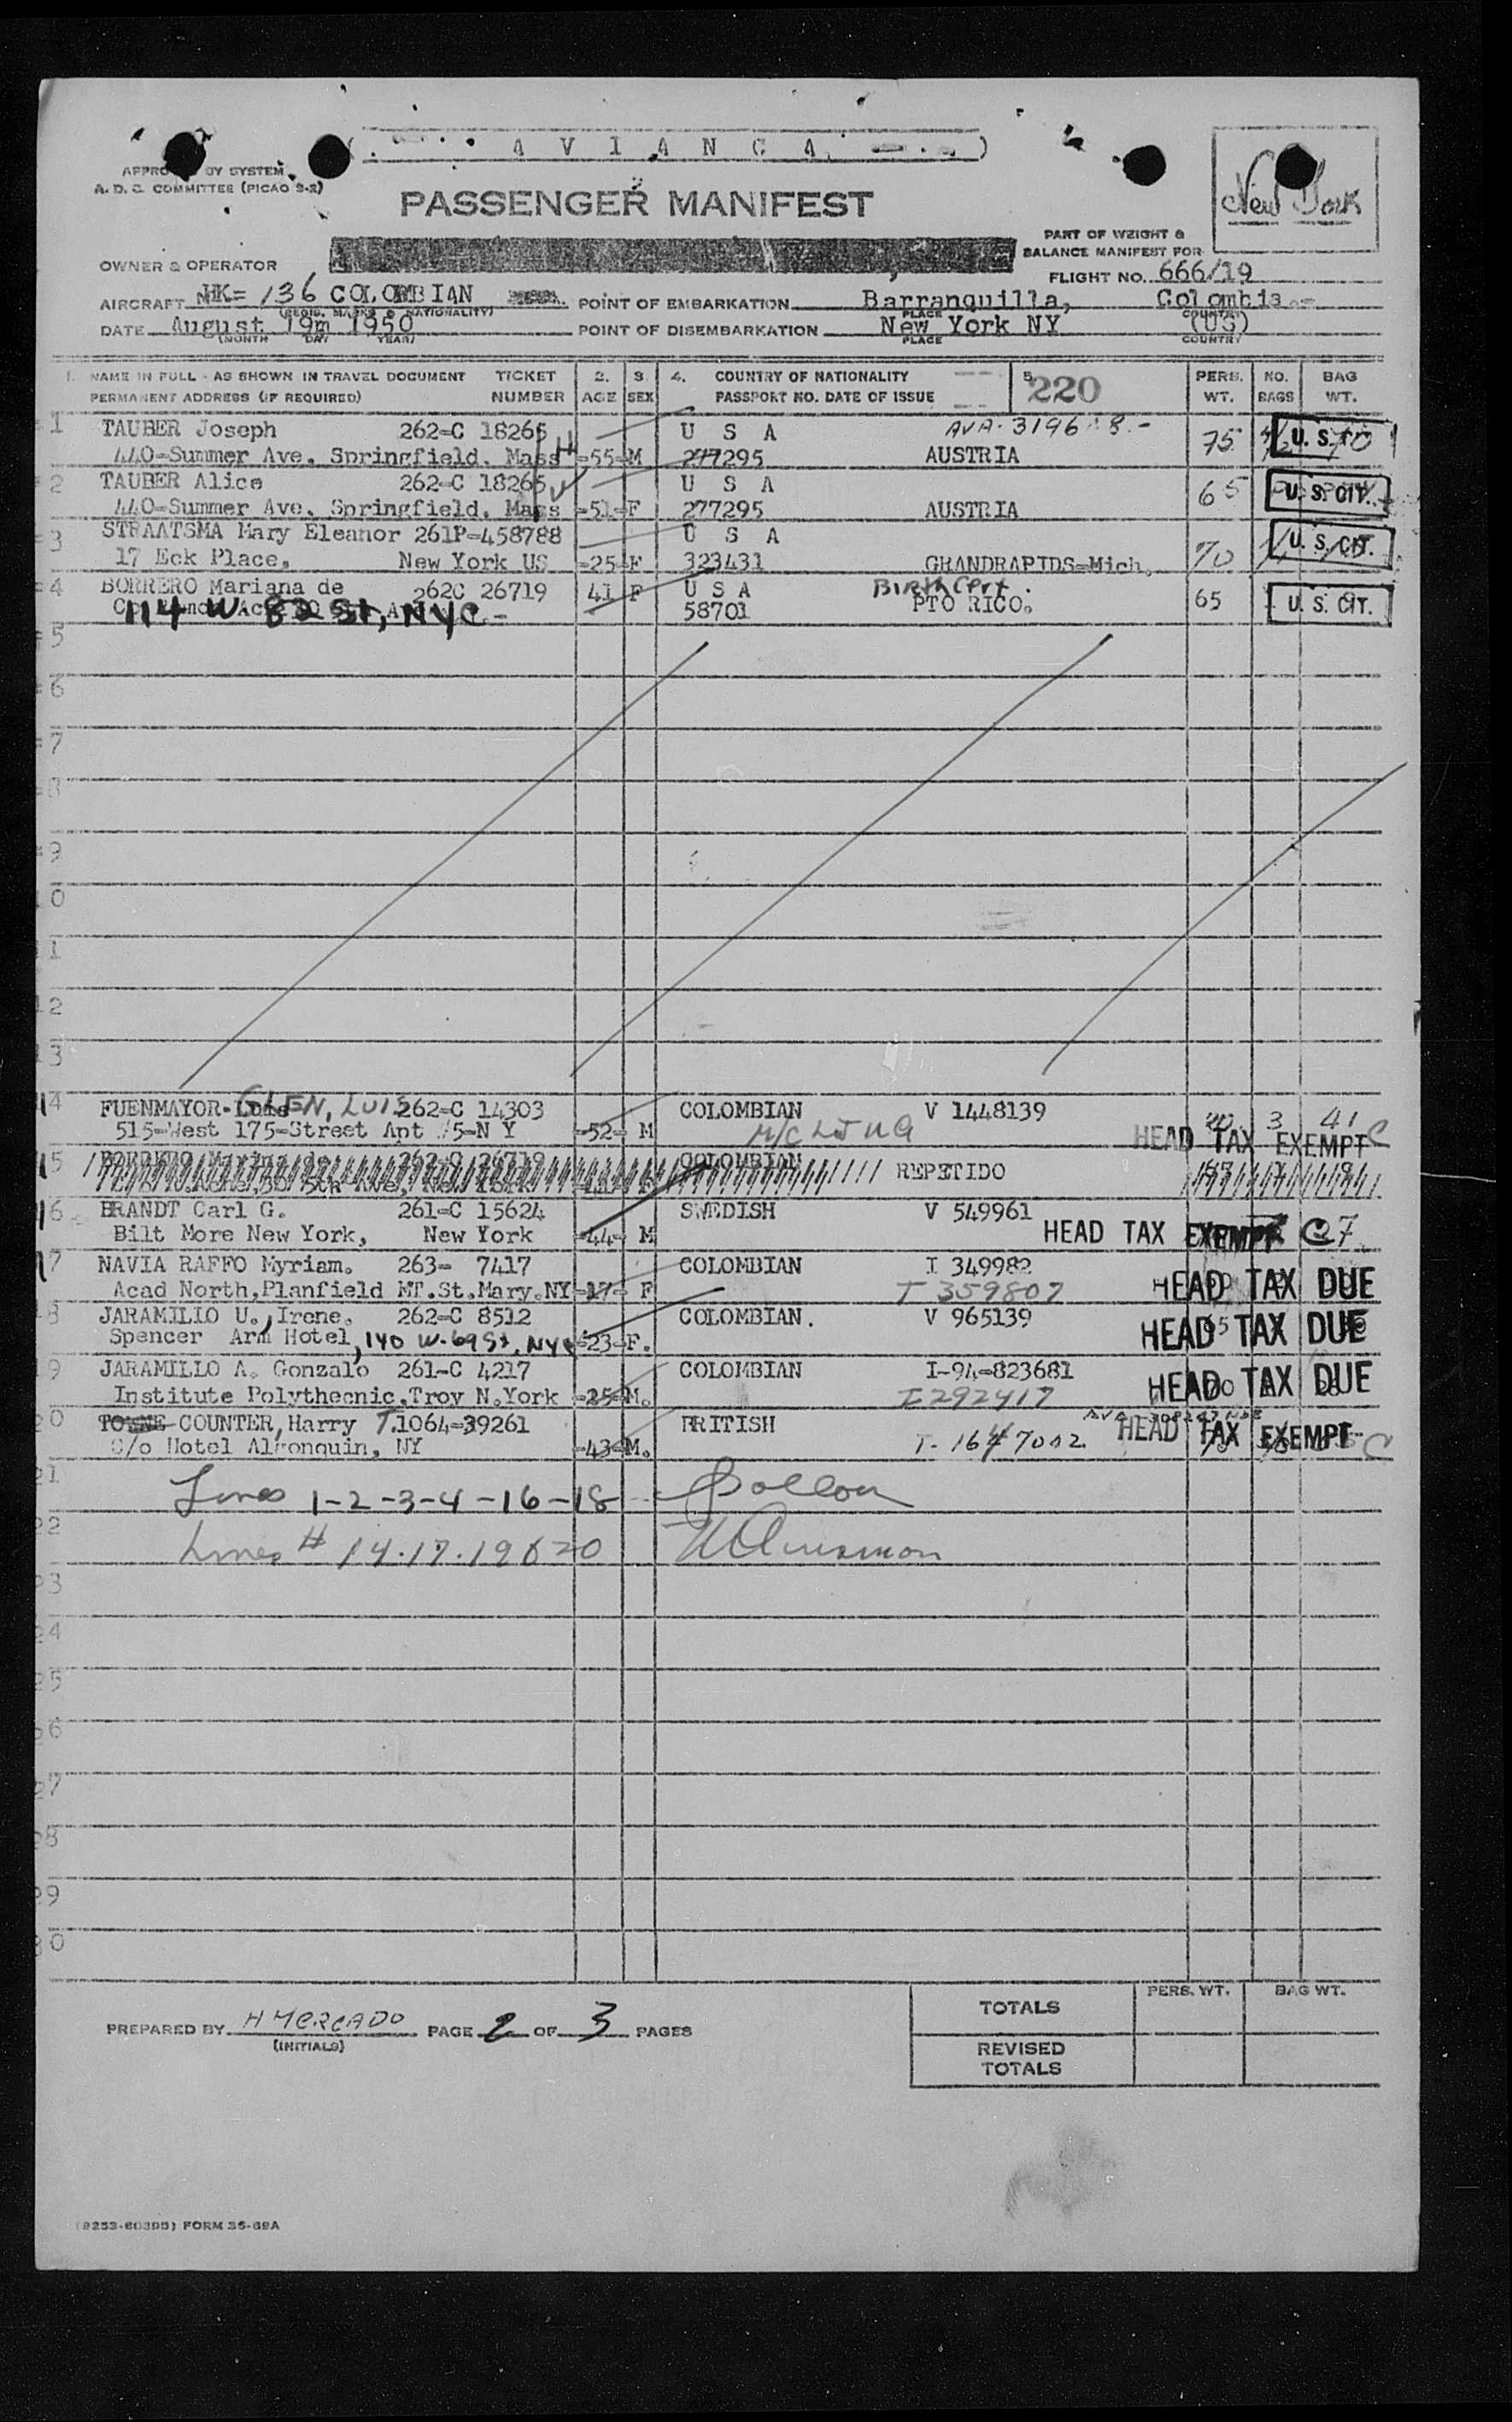 ( A V I A N C A )
APPROVED BY SYSTEM
A. D. C. COMMITTEE (PICAO 9-2)
PASSENGER MANIFEST
New York
PART OF WEIGHT &
BALANCE MANIFEST FOR
OWNER & OPERATOR
FLIGHT NO. 666/19
AIRCRAFT HK= 136 COLOMBIAN POINT OF EMBARKATION Barranquilla, Colombia
(REGIS. MARKS & NATIONALITY) PLACE COUNTRY
DATE August 19m 1950 POINT OF DISEMBARKATION New York NY (US)
(MONTH DAY YEAR) PLACE COUNTRY
1. NAME IN FULL - AS SHOWN IN TRAVEL DOCUMENT TICKET 2. 3. 4. COUNTRY OF NATIONALITY 5 220 PERS. NO. BAG
PERMANENT ADDRESS (IF REQUIRED) NUMBER AGE SEX PASSPORT NO. DATE OF ISSUE WT. BAGS WT.
1 TAUBER Joseph 262-C 18265 U S A
440-Summer Ave. Springfield. Mass -55-M 277295 AUSTRIA 75 70
2 TAUBER Alice 262-C 18265 U S A
440-Summer Ave. Springfield. Mass -51-F 277295 AUSTRIA 65 U. S. CIT.
3 STRAATSMA Mary Eleanor 261P-458788 U S A
17 Eck Place. New York US -25-F 323431 GRANDRAPIDS-Mich. 70 U. S. CIT.
4 BORRERO Mariana de 262C 26719 41 F U S A Birth Cert.
114 W 82 St, NYC- 58701 PTO RICO. 65 U. S. CIT.
5
6
7
8
9
10
11
12
13
14 FUENMAYOR-GLEN, LUIS 262-C 14303 COLOMBIAN V 1448139
515-West 175-Street Apt 5-N Y -52- M 3 41 HEAD TAX EXEMPT C
15 COLOMBIAN REPETIDO
16 BRANDT Carl G. 261-C 15624 SWEDISH V 549961
Bilt More New York, New York -44- M HEAD TAX EXEMPT C 7
17 NAVIA RAFFO Myriam. 263- 7417 COLOMBIAN I 349982
Acad North,Planfield MT.St.Mary.NY -17- F T 359807 HEAD TAX DUE
18 JARAMILLO U., Irene. 262-C 8512 COLOMBIAN. V 965139
Spencer Arm Hotel, 140 W-69 St, NYC -23-F. HEAD TAX DUE
19 JARAMILLO A. Gonzalo 261-C 4217 COLOMBIAN I-94-823681
Institute Polythecnic.Troy N.York -25-M. I 292417 HEAD TAX DUE
20 COUNTER, Harry T.1064-39261 BRITISH
C/o Hotel Algonquin, NY -43-M. HEAD TAX EXEMPT C
21 Lines 1-2-3-4-16-18
22 Lines # 14.17.19 & 20
23
24
25
26
27
28
29
30
PERS. WT. BAG WT.
TOTALS
PREPARED BY H MERCADO PAGE 2 OF 3 PAGES
(INITIALS)
REVISED
TOTALS
FORM 35-69A